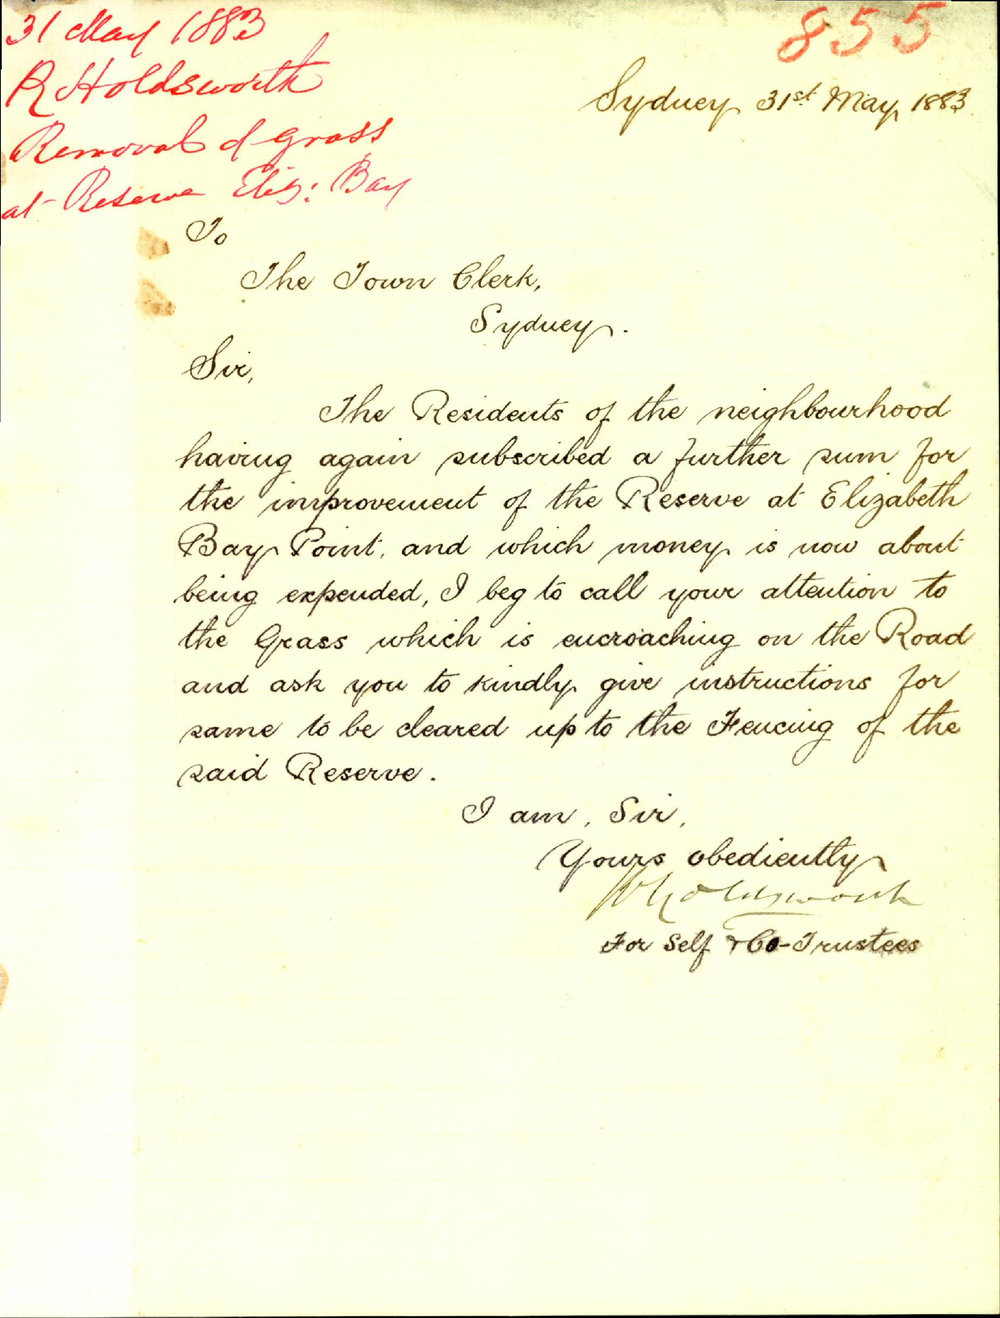 31 May 1883
R Holdsworth
Removal of Grass
at Reserve Eliz: Bay
855
Sydney 31st May 1883
To
The Town Clerk,
Sydney.
Sir,
The Residents of the neighbourhood
having again subscribed a further sum for
the improvement of the Reserve at Elizabeth
Bay Point, and which money is now about
being expended, I beg to call your attention to
the Grass which is encroaching on the Road
and ask you to kindly give instructions for
same to be cleared up to the Fencing of the
said Reserve.
I am, Sir,
Yours obediently
R Holdsworth
For Self & Co-Trustees